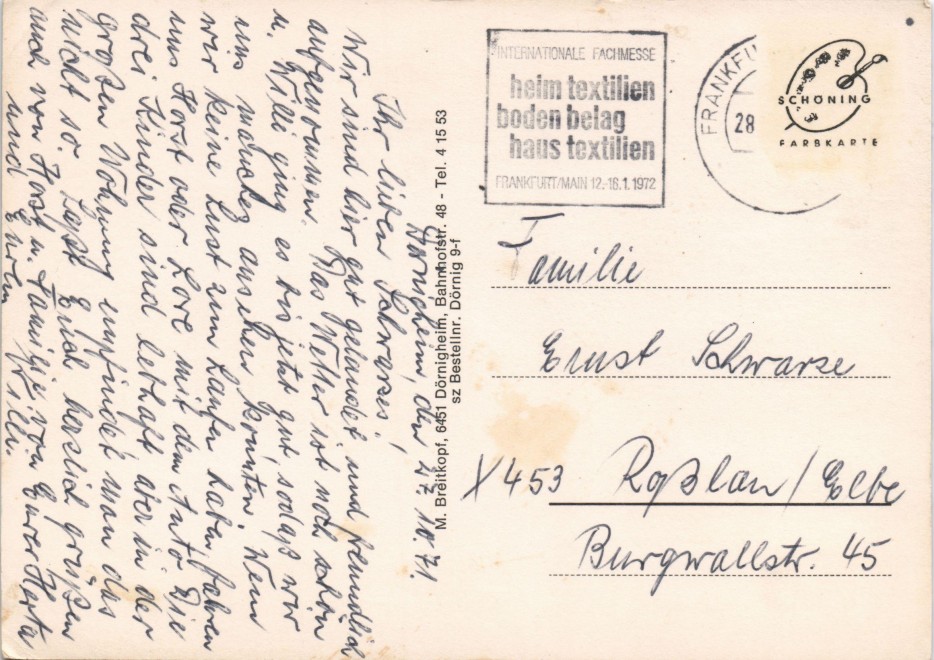 Dörnigheim, den 27.10.71.
Ihr lieben Schwarzes!
Wir sind hier gut gelandet und freundlich
aufgenommen. Das Wetter ist noch schön
u. Willi ging es bis jetzt gut, sodaß wir
uns manches ansehen konnten. Wenn
wir keine Lust zum Laufen haben fahren
uns Horst oder Lore mit dem Auto. Die
drei Kinder sind lebhaft aber in der
großen Wohnung empfindet man das
nicht so. Laßt Euch herzlich grüßen
auch von Horst u. Familie von Eurer Herta
und Willi.
M. Breitkopf, 6451 Dörnigheim, Bahnhofstr. 48 - Tel. 4 15 53
sz Bestellnr. Dörnig 9-f
INTERNATIONALE FACHMESSE
heim textilien
boden belag
haus textilien
FRANKFURT/MAIN 12.-16.1.1972
FRANKFU
28
SCHÖNING
FARBKARTE
Familie
Ernst Schwarze
X 453 Roßlau/Elbe
Burgwallstr. 45